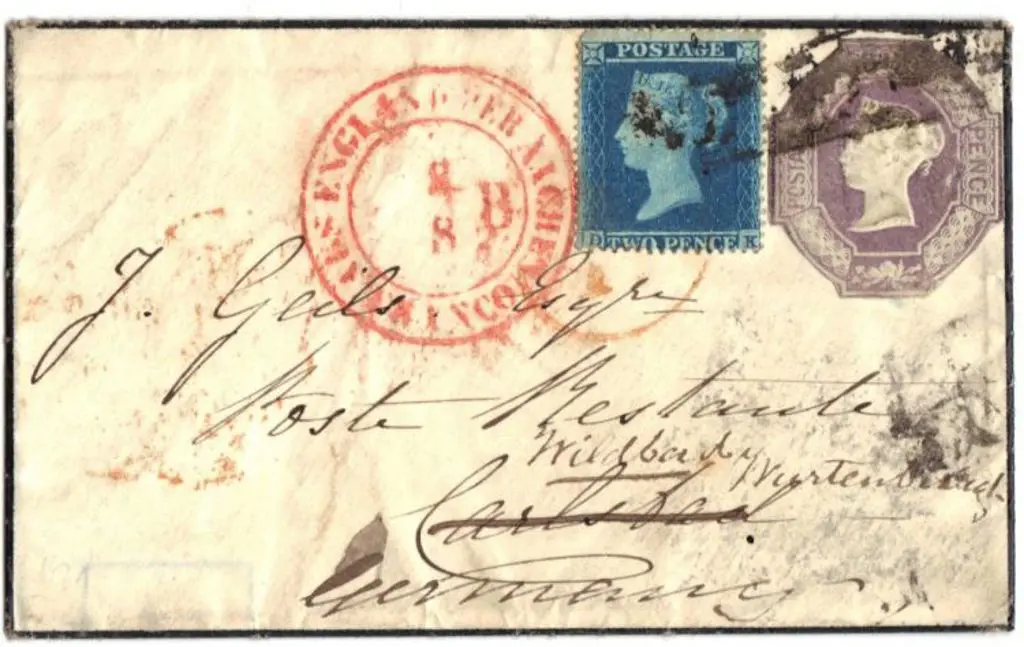 POSTAGE
TWO PENCE
D K
POSTA
PENCE
AUS ENGLAND PER AACHEN FRANCO
B
J. Geils Esqre
Poste Restante
Wildbad Wurtenburgh
Carlsbad
Germany